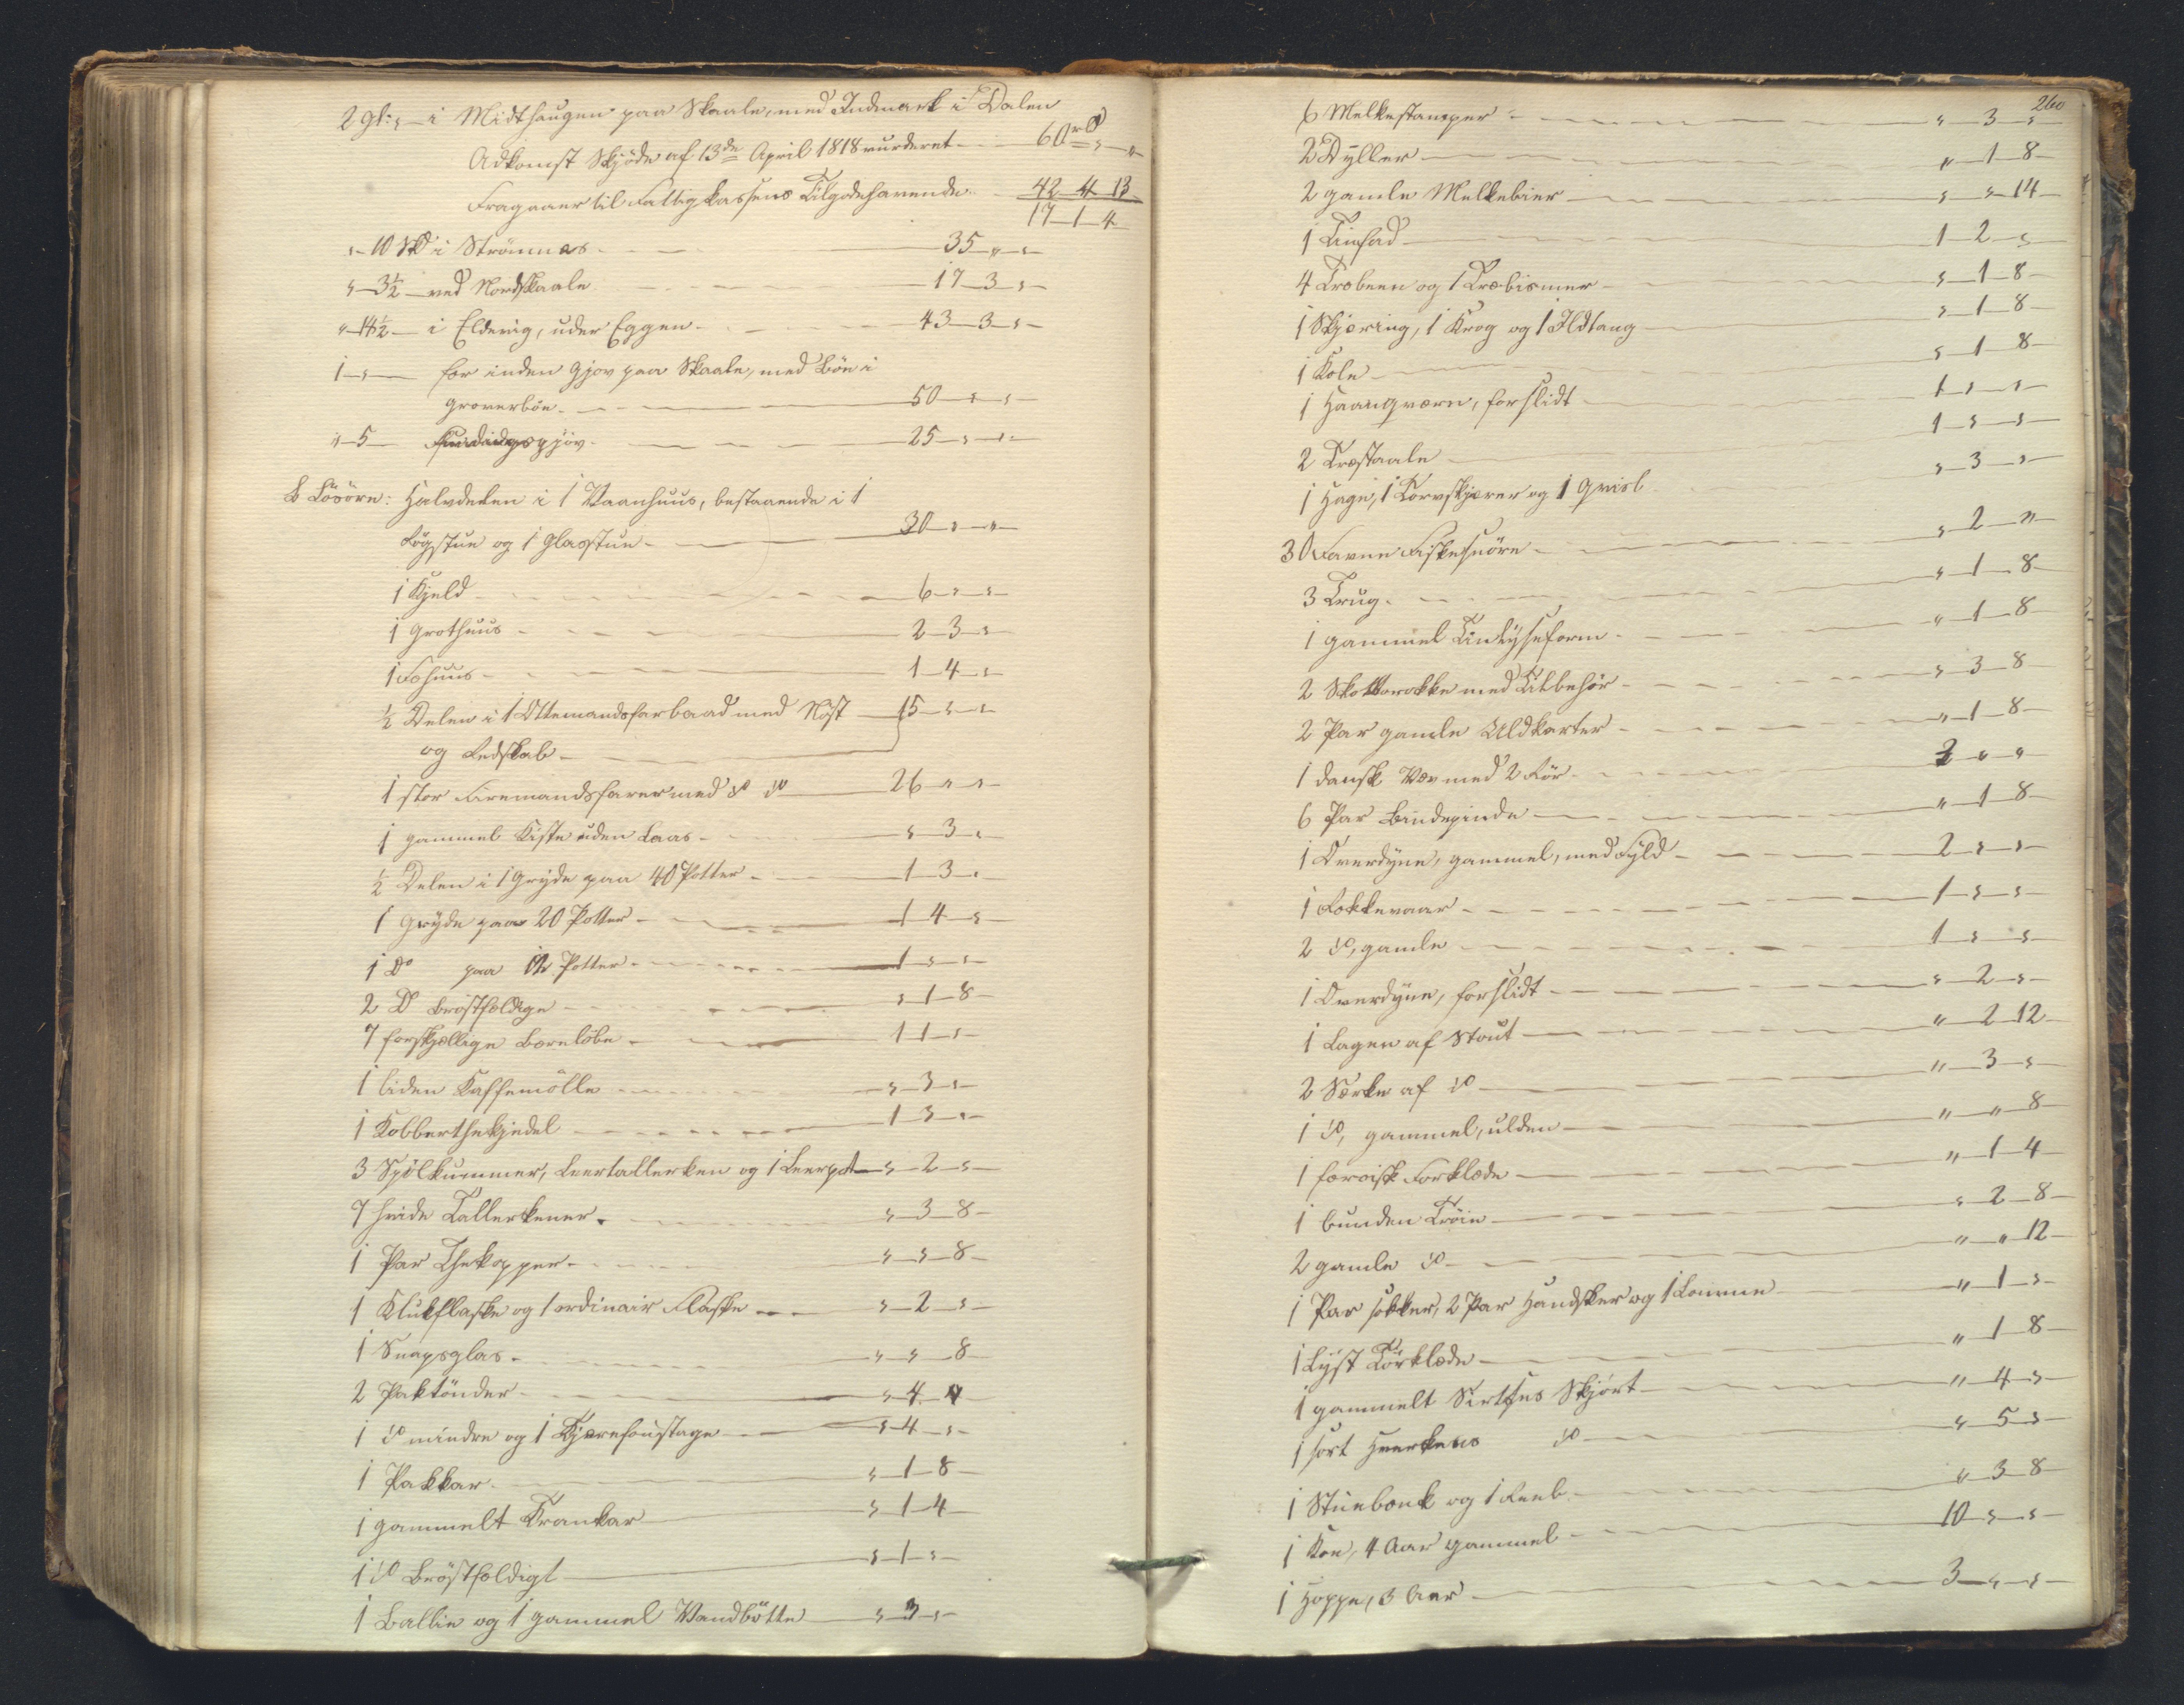 2 Gl: „ — i Midthaugen paa Skaale, med Indmark i Dalen
Adkomst Skjöde af 13de April 1818 vurderet — 60 rd „ — „
Fragaaer til Fattigkassens Tilgodehavende 42 4 13
17 — 1 — 4
„ — 10 Sk i Strömnæs — 35 — „ — „
„ — 3½ — ved Nordskaale — 17 — 3 — „
„ — 14½ — i Eldevig, uder Eggen — 43 — 3 — „
1 — „ — for inden Gjov paa Skaale, med Bön i
groverbön — 50 — „ — „
„ — 5 — gjöv — 25 — „ — „
B Lösöre: Halvdelen i 1 Vaanhuus, bestaaende i 1
Rögstue og 1 Glasstue — 30 — „ — „
1 Kjeld — 6 — „ — „
1 Grothuus — 2 — 3 — „
1 Fohuus — 1 — 4 — „
½ Delen i 1 Ottemandsfarbaad med Nöst — 15 — „ — „
og Redskab —
1 stor Firemandsfarer med do do — 26 „ — „
1 gammel Kiste uden Laas — „ — 3 — „
½ Delen i 1 Gryde paa 40 Potter — 1 — 3 — „
1 Gryde paa 20 Potter — 1 4 — „
1 Do paa 12 Potter — 1 — „ — „
2 Do Bröstfældige — „ 1 — 8
7 forskjællige Borelöbe — 1 1 — „
1 liden Kaffemölle — „ — 3 — „
1 Kobberthekjedel — 1 3 — „
3 Spölkummer, Leertallerken og 1 Leerpot — „ — 2 — „
7 hvide Tallerkener — „ — 3 — 8
1 Par Thekopper — „ — „ — 8
1 Klukflaske og 1 ordinair Flaske — „ — 2 — „
1 Snapsglas — „ — „ — 8
2 Paktönder — „ — 4 — „
1 do mindre og 1 Kjærefoustage — „ — 4 — „
1 Pakkar — „ — 1 — 8
1 gammelt Trankar — „ — 1 — 4
1 do Bröstfældigt — „ — 1 — „
1 Ballie og 1 gammel Vandbötte — „ — 3 — „
260
6 Melkestamper — „ — 3 — „
2 Dyller — „ — 1 — 8
2 gamle Melkebier — „ — „ — 14
1 Tinfad — 1 — 2 — „
4 Træbeen og 1 Træbismer — „ — 1 — 8
1 Skjæring, 1 Krog og 1 Ildtang — „ — 1 — 8
1 Kole — „ — 1 — 8
1 Haanqværn, forslidt — 1 — „ — „
2 Træstaale — 1 — „ — „
1 Hage, 1 Torvskjærer og 1 Greisl — „ — 3 — „
30 Favne Fiskesnöre — „ — 2 — „
3 Trug — „ — 1 — 8
1 gammel Tinlyseform — „ — 1 — 8
2 Skotterokke med Tilbehör — „ — 3 — 8
2 Par gamle Uldkarter — „ — 1 — 8
1 dansk Væv med 2 Rör — 2 — „ — „
6 Par Bindepinde — „ — 1 — 8
1 Overdyne, gammel, med Fyld — 2 — „ — „
1 Rokkevaar — 1 — „ — „
2 do, gamle — 1 — „ — „
1 Overdyne, forslidt — „ — 2 — „
1 Lagen af Stout — „ — 2 — 12
2 Særke af do — „ — 3 — „
1 do, gammel, ulden — „ — „ — 8
1 færoisk Forklæde — „ — 1 — 4
1 bunden Tröie — „ — 2 — 8
2 gamle do — „ — „ — 12
1 Par sokker, 2 Par Handsker og 1 Lomme — „ — 1 — „
1 Lyst Törklæde — „ — 1 — 8
1 gammelt Sirtses Skjört — „ — 4 — „
1 sort Hverkens do — „ — 5 — „
1 Stuebænk og 1 Reeb — „ — 3 — 8
1 Koe, 4 Aar gammel — 10 — „ — „
1 Hoppe, 3 Aar — 3 — „ — „